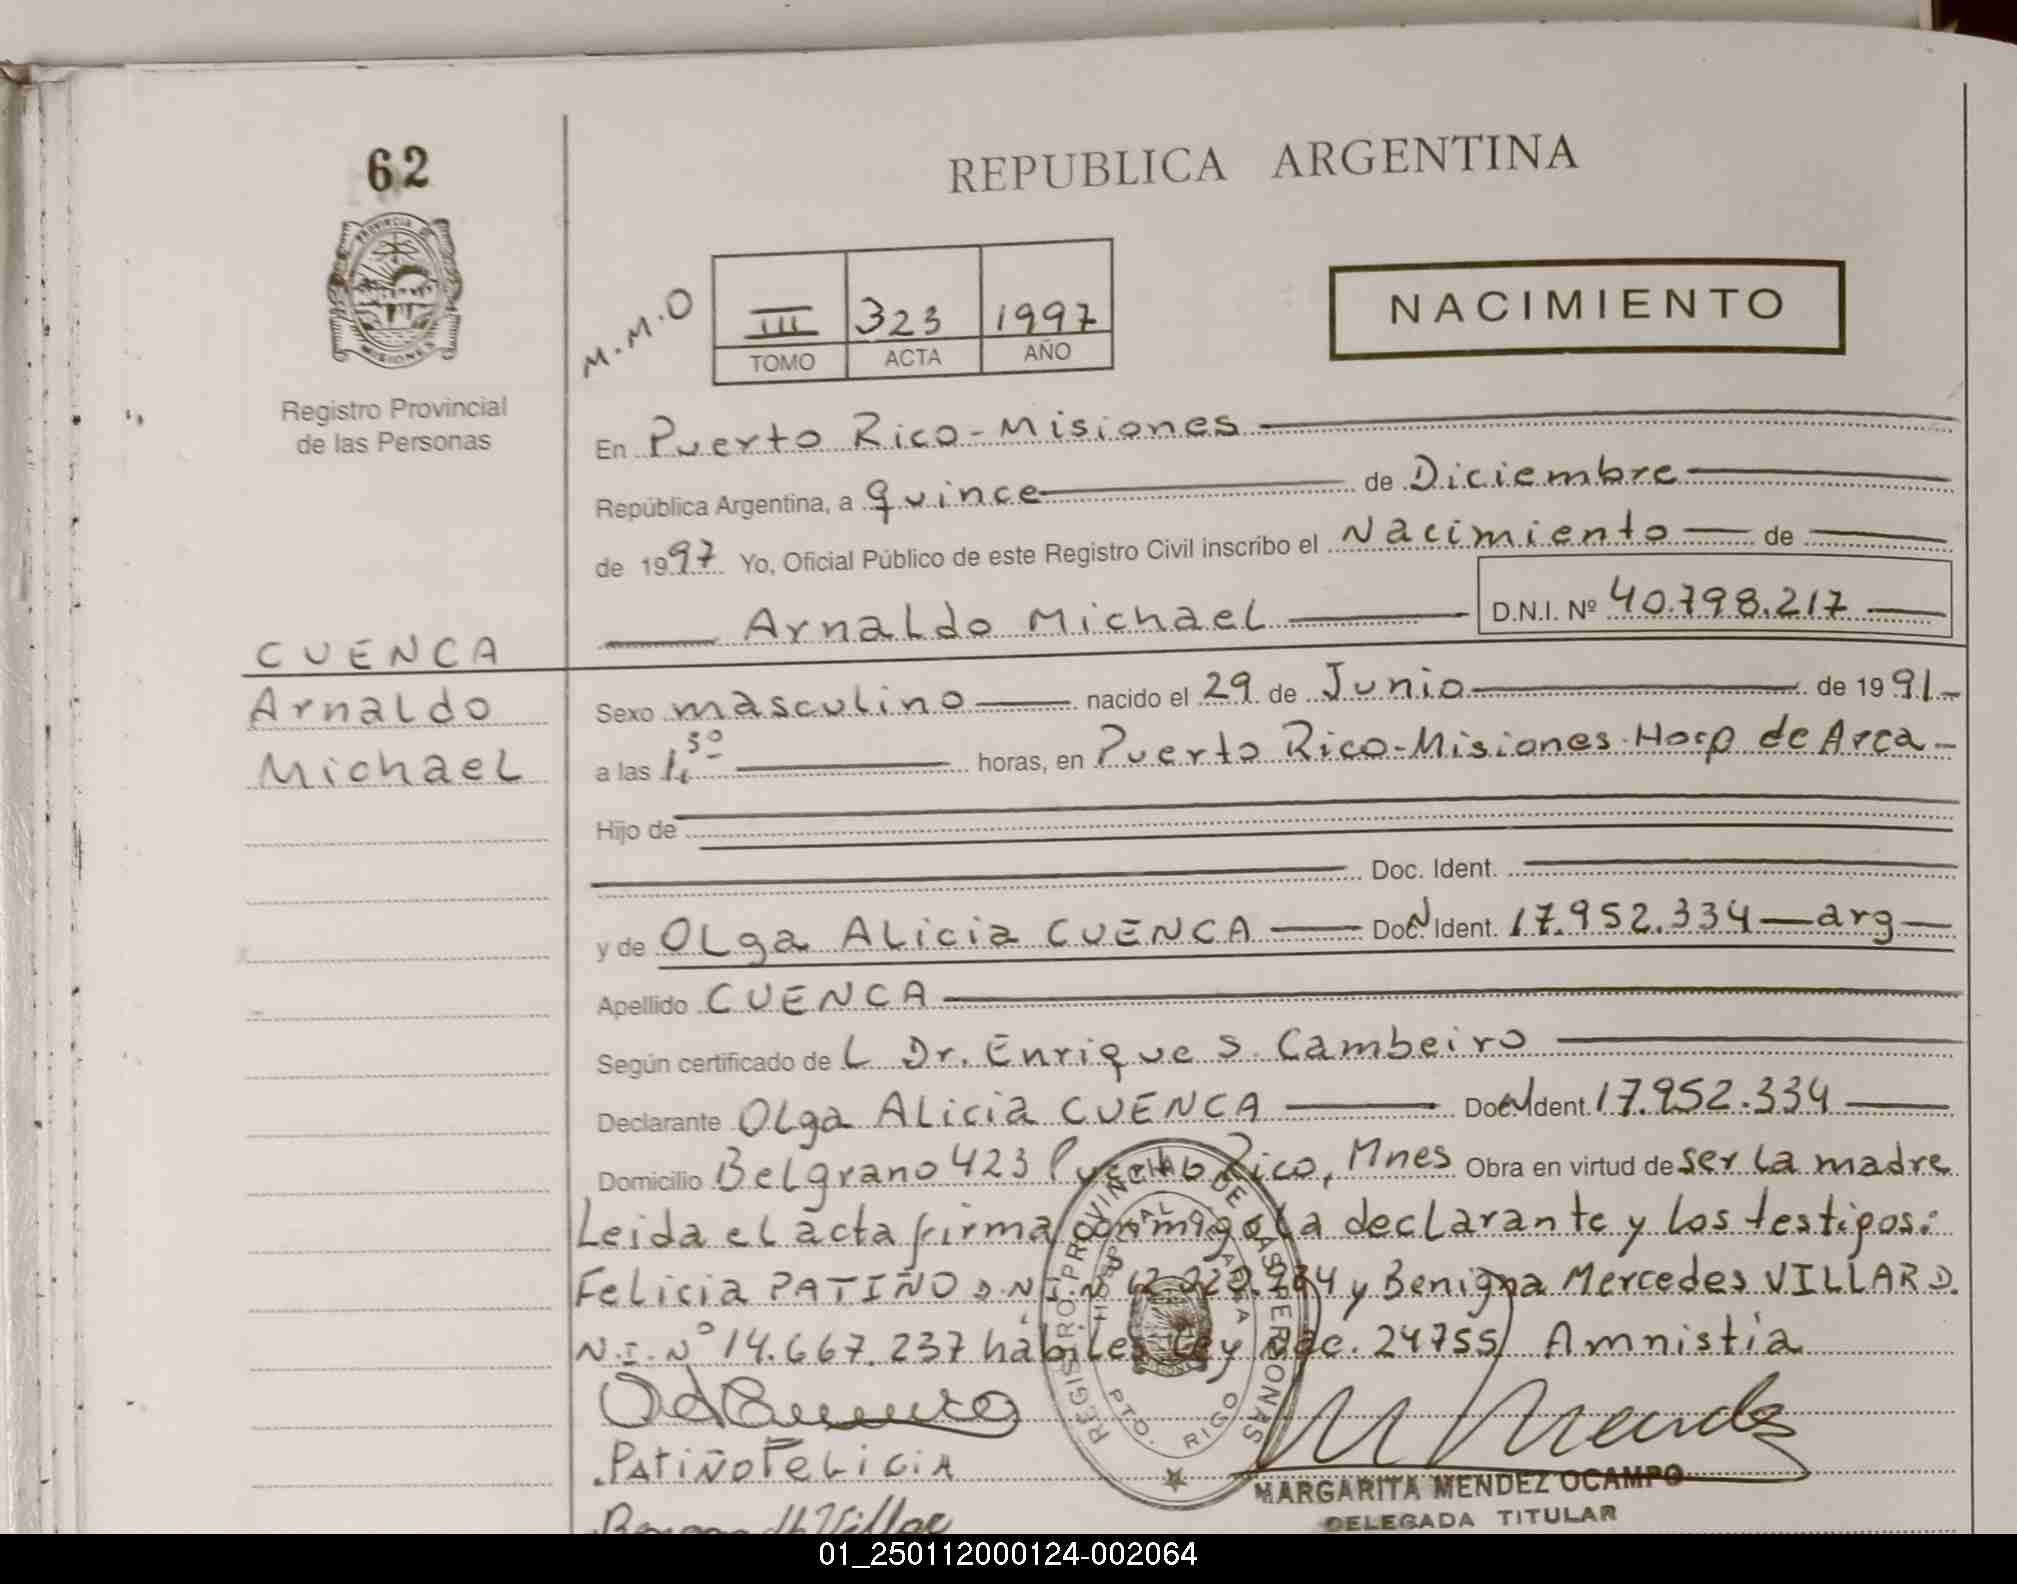 62
REPUBLICA ARGENTINA
PROVINCIA DE
MISIONES
Registro Provincial
de las Personas
M.M.O
III 323 1997
TOMO ACTA AÑO
NACIMIENTO
En Puerto Rico-Misiones
República Argentina, a quince de Diciembre
de 1997 Yo, Oficial Público de este Registro Civil inscribo el Nacimiento de
Arnaldo Michael D.N.I. Nº 40.798.217
CUENCA
Arnaldo
Michael
Sexo masculino nacido el 29 de Junio de 1991-
a las horas, en Puerto Rico-Misiones-Hosp de Area-
Hijo de
Doc. Ident.
y de Olga Alicia CUENCA DocN Ident. 17.952.334 arg
Apellido CUENCA
Según certificado de L Dr. Enrique S. Cambeiro
Declarante Olga Alicia CUENCA Doc.N Ident. 17.952.334
Domicilio Belgrano 423 Puerto Rico, Mnes Obra en virtud de ser la madre
Leida el acta firma conmigo la declarante y los testigos:
Felicia PATIÑO D.N.I.Nº y Benigna Mercedes VILLAR D.
N.I.Nº 14.667.237 hábiles Ley Nac. 24755 Amnistía
REGISTRO PROVINCIAL DE LAS PERSONAS
PTO. RIGO
PATIÑO FELICIA
MARGARITA MENDEZ OCAMPO
DELEGADA TITULAR
01_250112000124-002064